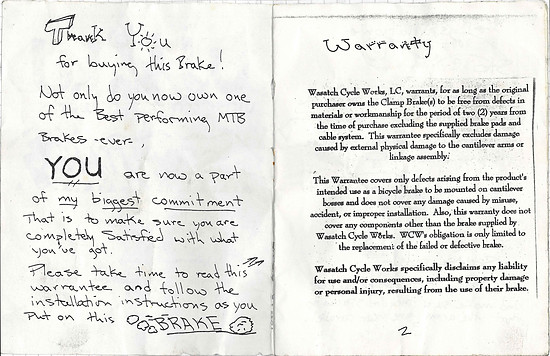 Thank You
for buying this Brake!
Not only do you now own one
of the Best Performing MTB
Brakes ever,
YOU are now a part
of my biggest commitment
That is to make sure you are
completely Satisfied with what
you've got.
Please take time to read this
warrantee and follow the
installation instructions as you
Put on this BRAKE
Warranty
Wasatch Cycle Works, LC, warrants, for as long as the original
purchaser owns the Clamp Brake(s) to be free from defects in
materials or workmanship for the period of two (2) years from
the time of purchase excluding the supplied brake pads and
cable system. This warrantee specifically excludes damage
caused by external physical damage to the cantilever arms or
linkage assembly.
This Warrantee covers only defects arising from the product's
intended use as a bicycle brake to be mounted on cantilever
bosses and does not cover any damage caused by misuse,
accident, or improper installation. Also, this warranty does not
cover any components other than the brake supplied by
Wasatch Cycle Works. WCW's obligation is only limited to
the replacement of the failed or defective brake.
Wasatch Cycle Works specifically disclaims any liability
for use and/or consequences, including property damage
or personal injury, resulting from the use of their brake.
2